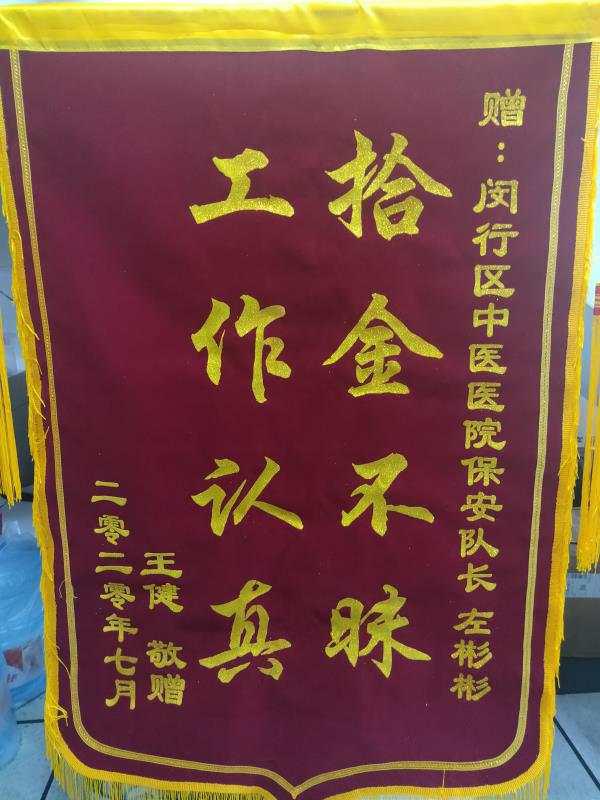 赠：闵行区中医医院保安队长 左彬彬
拾金不昧
工作认真
王健 敬赠
二零二零年七月